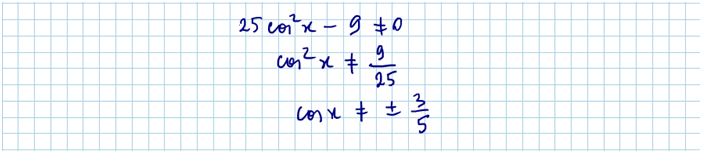 25 cos²x − 9 ≠ 0
cos²x ≠ 9/25
cosx ≠ ± 3/5